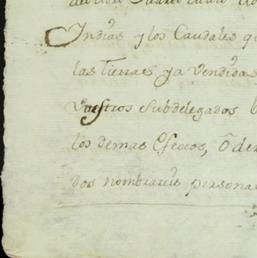 Indias y los Caudales q
las tierras ya vendidas
vuestros subdelegados
los demas efectos, ô de
dos nombrareis persona